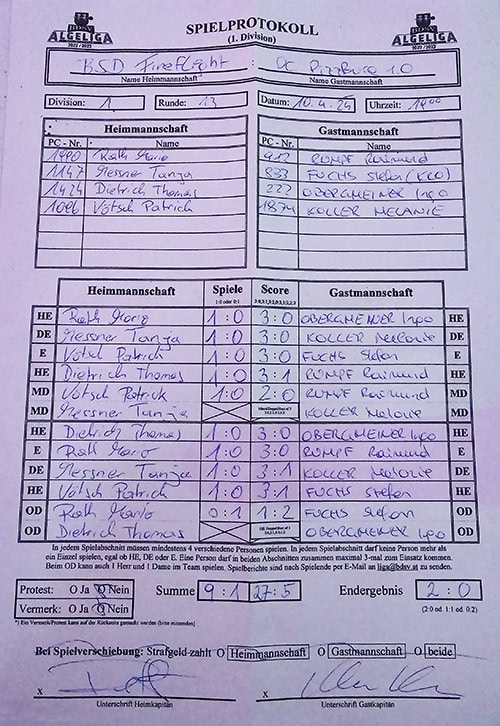 BDSV ALGELIGA 2022/2023 SPIELPROTOKOLL BDSV ALGELIGA 2022/2023
(1. Division)
BSD Fireflight : DC
Name Heimmannschaft Name Gastmannschaft
Division: 1 Runde: 13 Datum: 10.4.24 Uhrzeit: 19°°
Heimmannschaft Gastmannschaft
PC - Nr. Name PC - Nr. Name
1990 Rath Mario 912 RUMPF Raimund
1147 Messner Tanja 833 FUCHS Stefan
1424 Dietrich Thomas 222 OBERGMEINER Ingo
1096 Votsch Patrich 1874 KOLLER MELANIE
Heimmannschaft Spiele Score Gastmannschaft
1:0 oder 0:1
HE Rath Mario 1:0 3:0 OBERGMEINER Ingo HE
DE Messner Tanja 1:0 3:0 KOLLER Melanie DE
E Votsch Patrich 1:0 3:0 FUCHS Stefan E
HE Dietrich Thomas 1:0 3:1 RUMPF Raimund HE
MD Votsch Patrick 1:0 2:0 RUMPF Raimund MD
MD Messner Tanja KOLLER Melanie MD
HE Dietrich Thomas 1:0 3:0 OBERGMEINER Ingo HE
E Rath Mario 1:0 3:0 RUMPF Raimund E
DE Messner Tanja 1:0 3:1 KOLLER Melanie DE
HE Votsch Patrich 1:0 3:1 FUCHS Stefan HE
OD Rath Mario 0:1 1:2 FUCHS Stefan OD
OD Dietrich Thomas OBERGMEINER Ingo OD
In jedem Spielabschnitt müssen mindestens 4 verschiedene Personen spielen. In jedem Spielabschnitt darf keine Person mehr als
ein Einzel spielen, egal ob HE, DE oder E. Eine Person darf in beiden Abschnitten zusammen maximal 3-mal zum Einsatz kommen.
Beim OD kann auch 1 Herr und 1 Dame im Team spielen. Spielberichte sind nach Spielende per E-Mail an liga@bdsv.at zu senden
Protest: O Ja O Nein Summe 9:1 27:5 Endergebnis 2:0
Vermerk: O Ja O Nein (2:0 od. 1:1 od. 0:2)
*) Ein Vermerk/Protest kann auf der Rückseite gemacht werden (bitte ankreuzen)
Bei Spielverschiebung: Strafgeld zahlt O Heimmannschaft O Gastmannschaft O beide
x x
Unterschrift Heimkapitän Unterschrift Gastkapitän